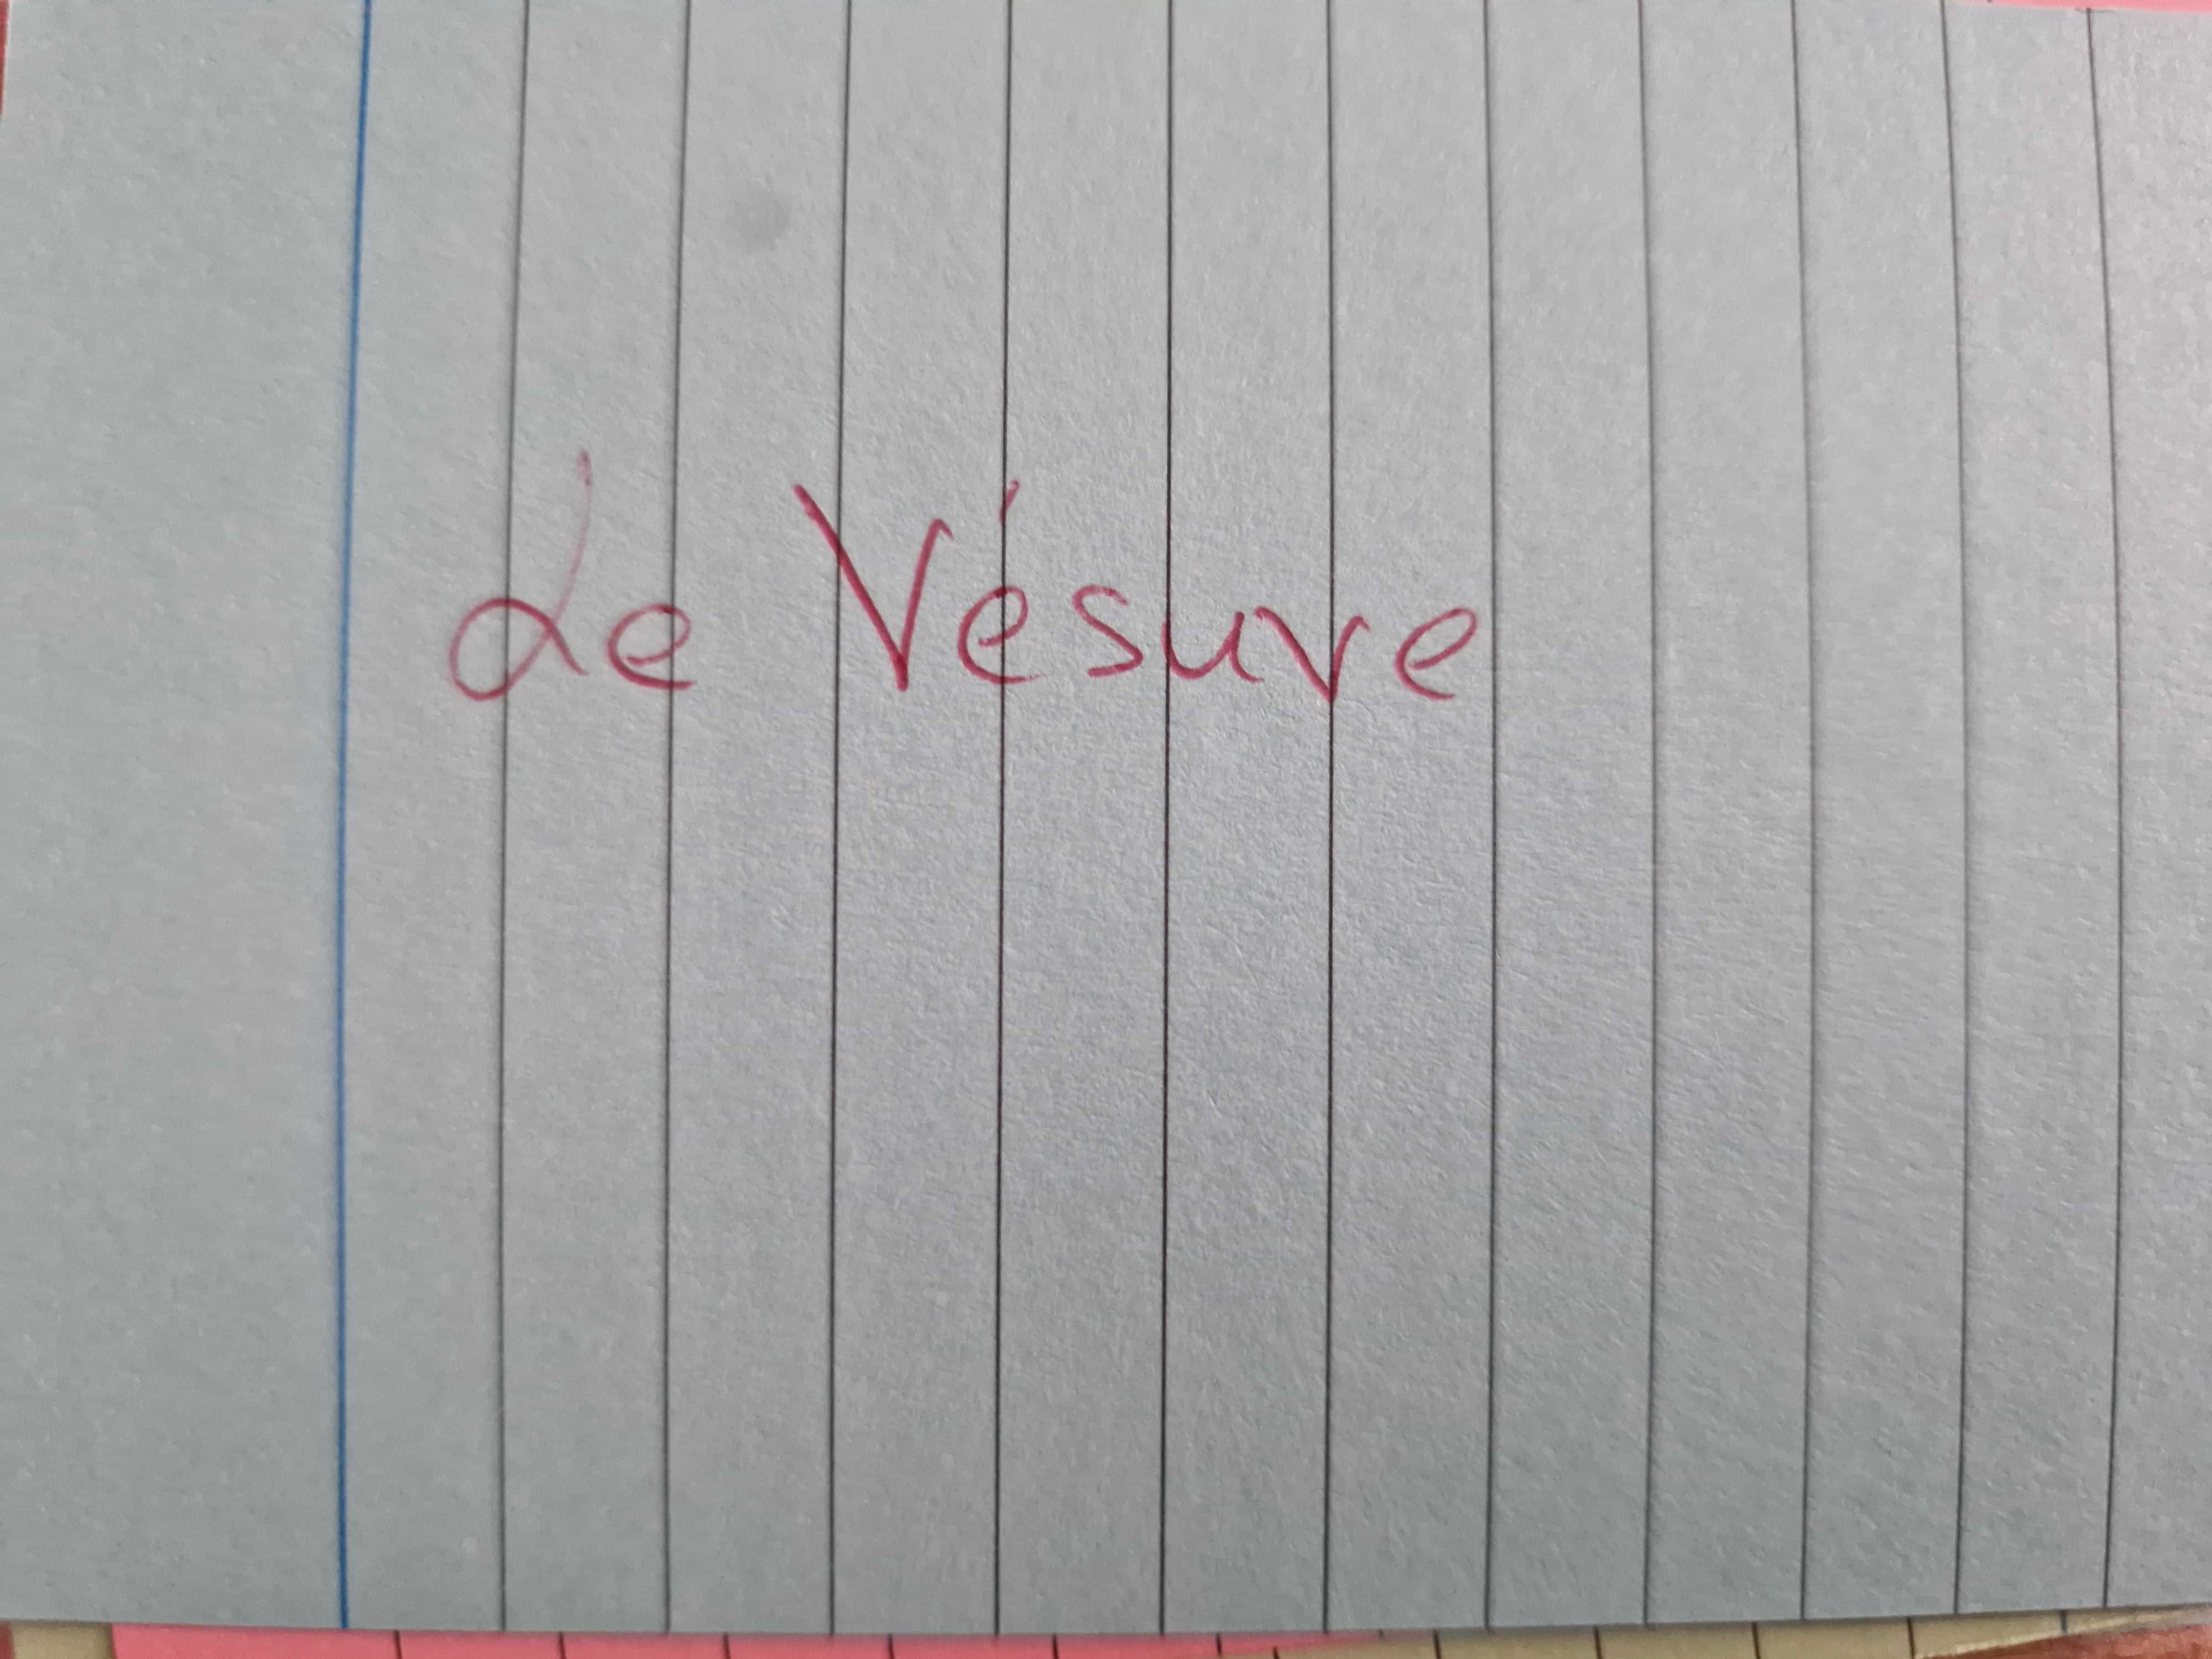 de Vésuve